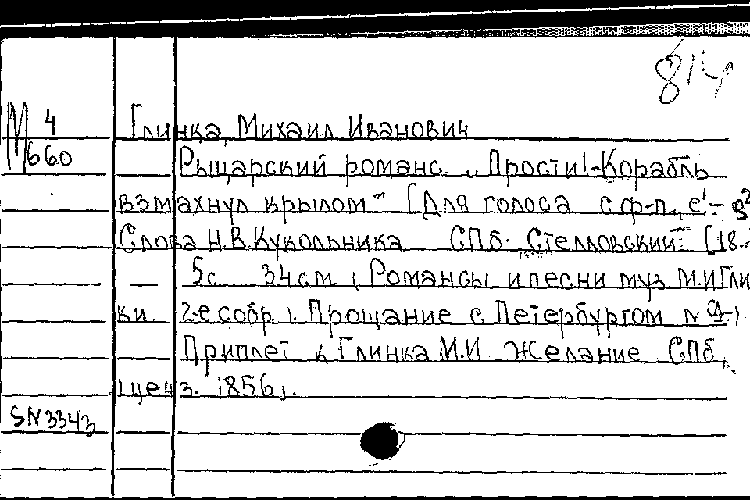 814
М 4 Глинка, Михаил Иванович
660 Рыцарский романс. „Прости!-Корабль
взмахнул крылом" [Для голоса с ф-п., e¹-g²
Слова Н.В. Кукольника СПб. Стелловский [18..
— 5с 34см (Романсы и песни муз М.И Гли
ки. 2-е собр. Прощание с Петербургом N 9)
Приплет к Глинка М.И Желание СПб,
(ценз. 1856).
SN3343